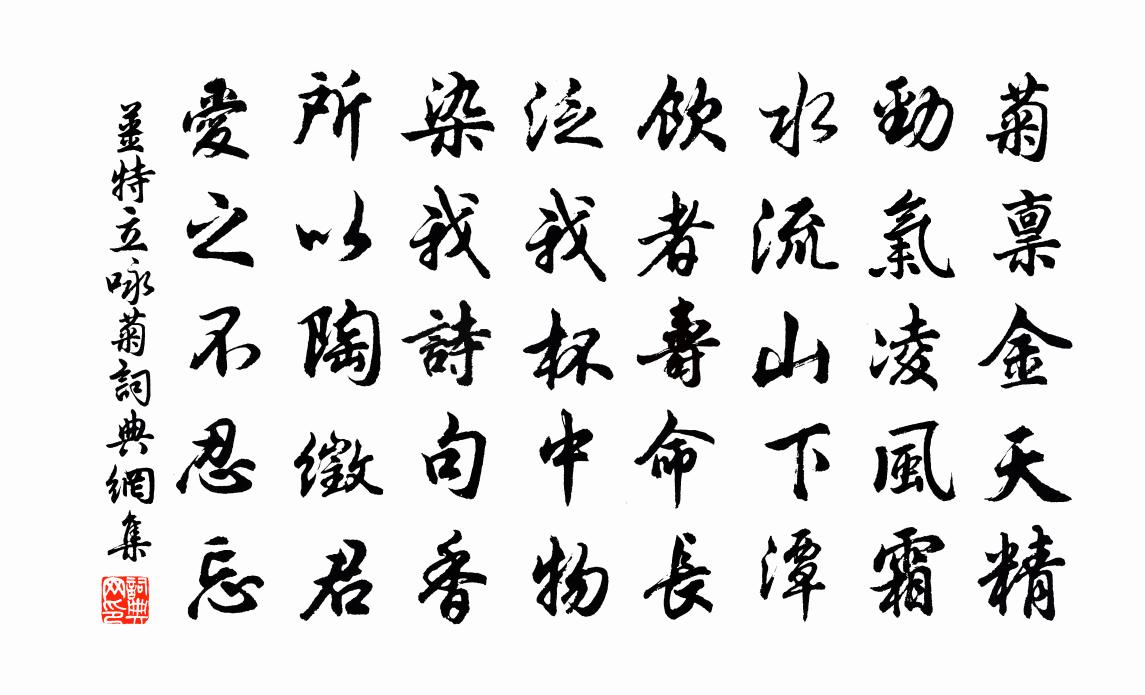 菊稟金天精
勁氣凌風霜
水流山下潭
飲者壽命長
泛我杯中物
染我詩句香
所以陶徵君
愛之不忍忘
姜特立咏菊詞典網集
詞典网印